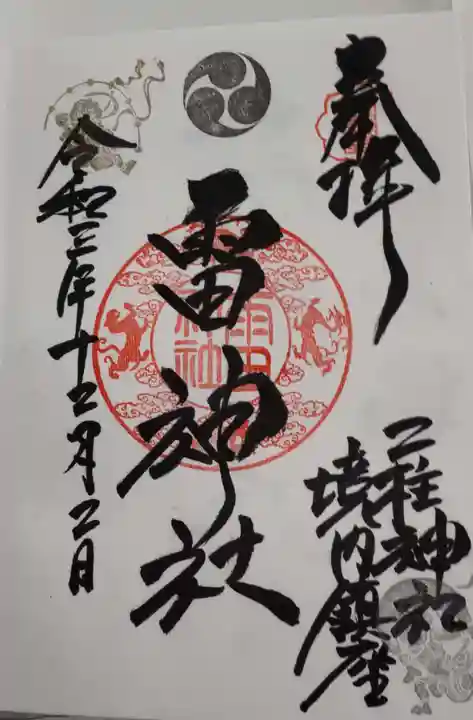 奉拝
二柱神社
境内鎮座
雷神社
雷
神社
令和三年十二月二日